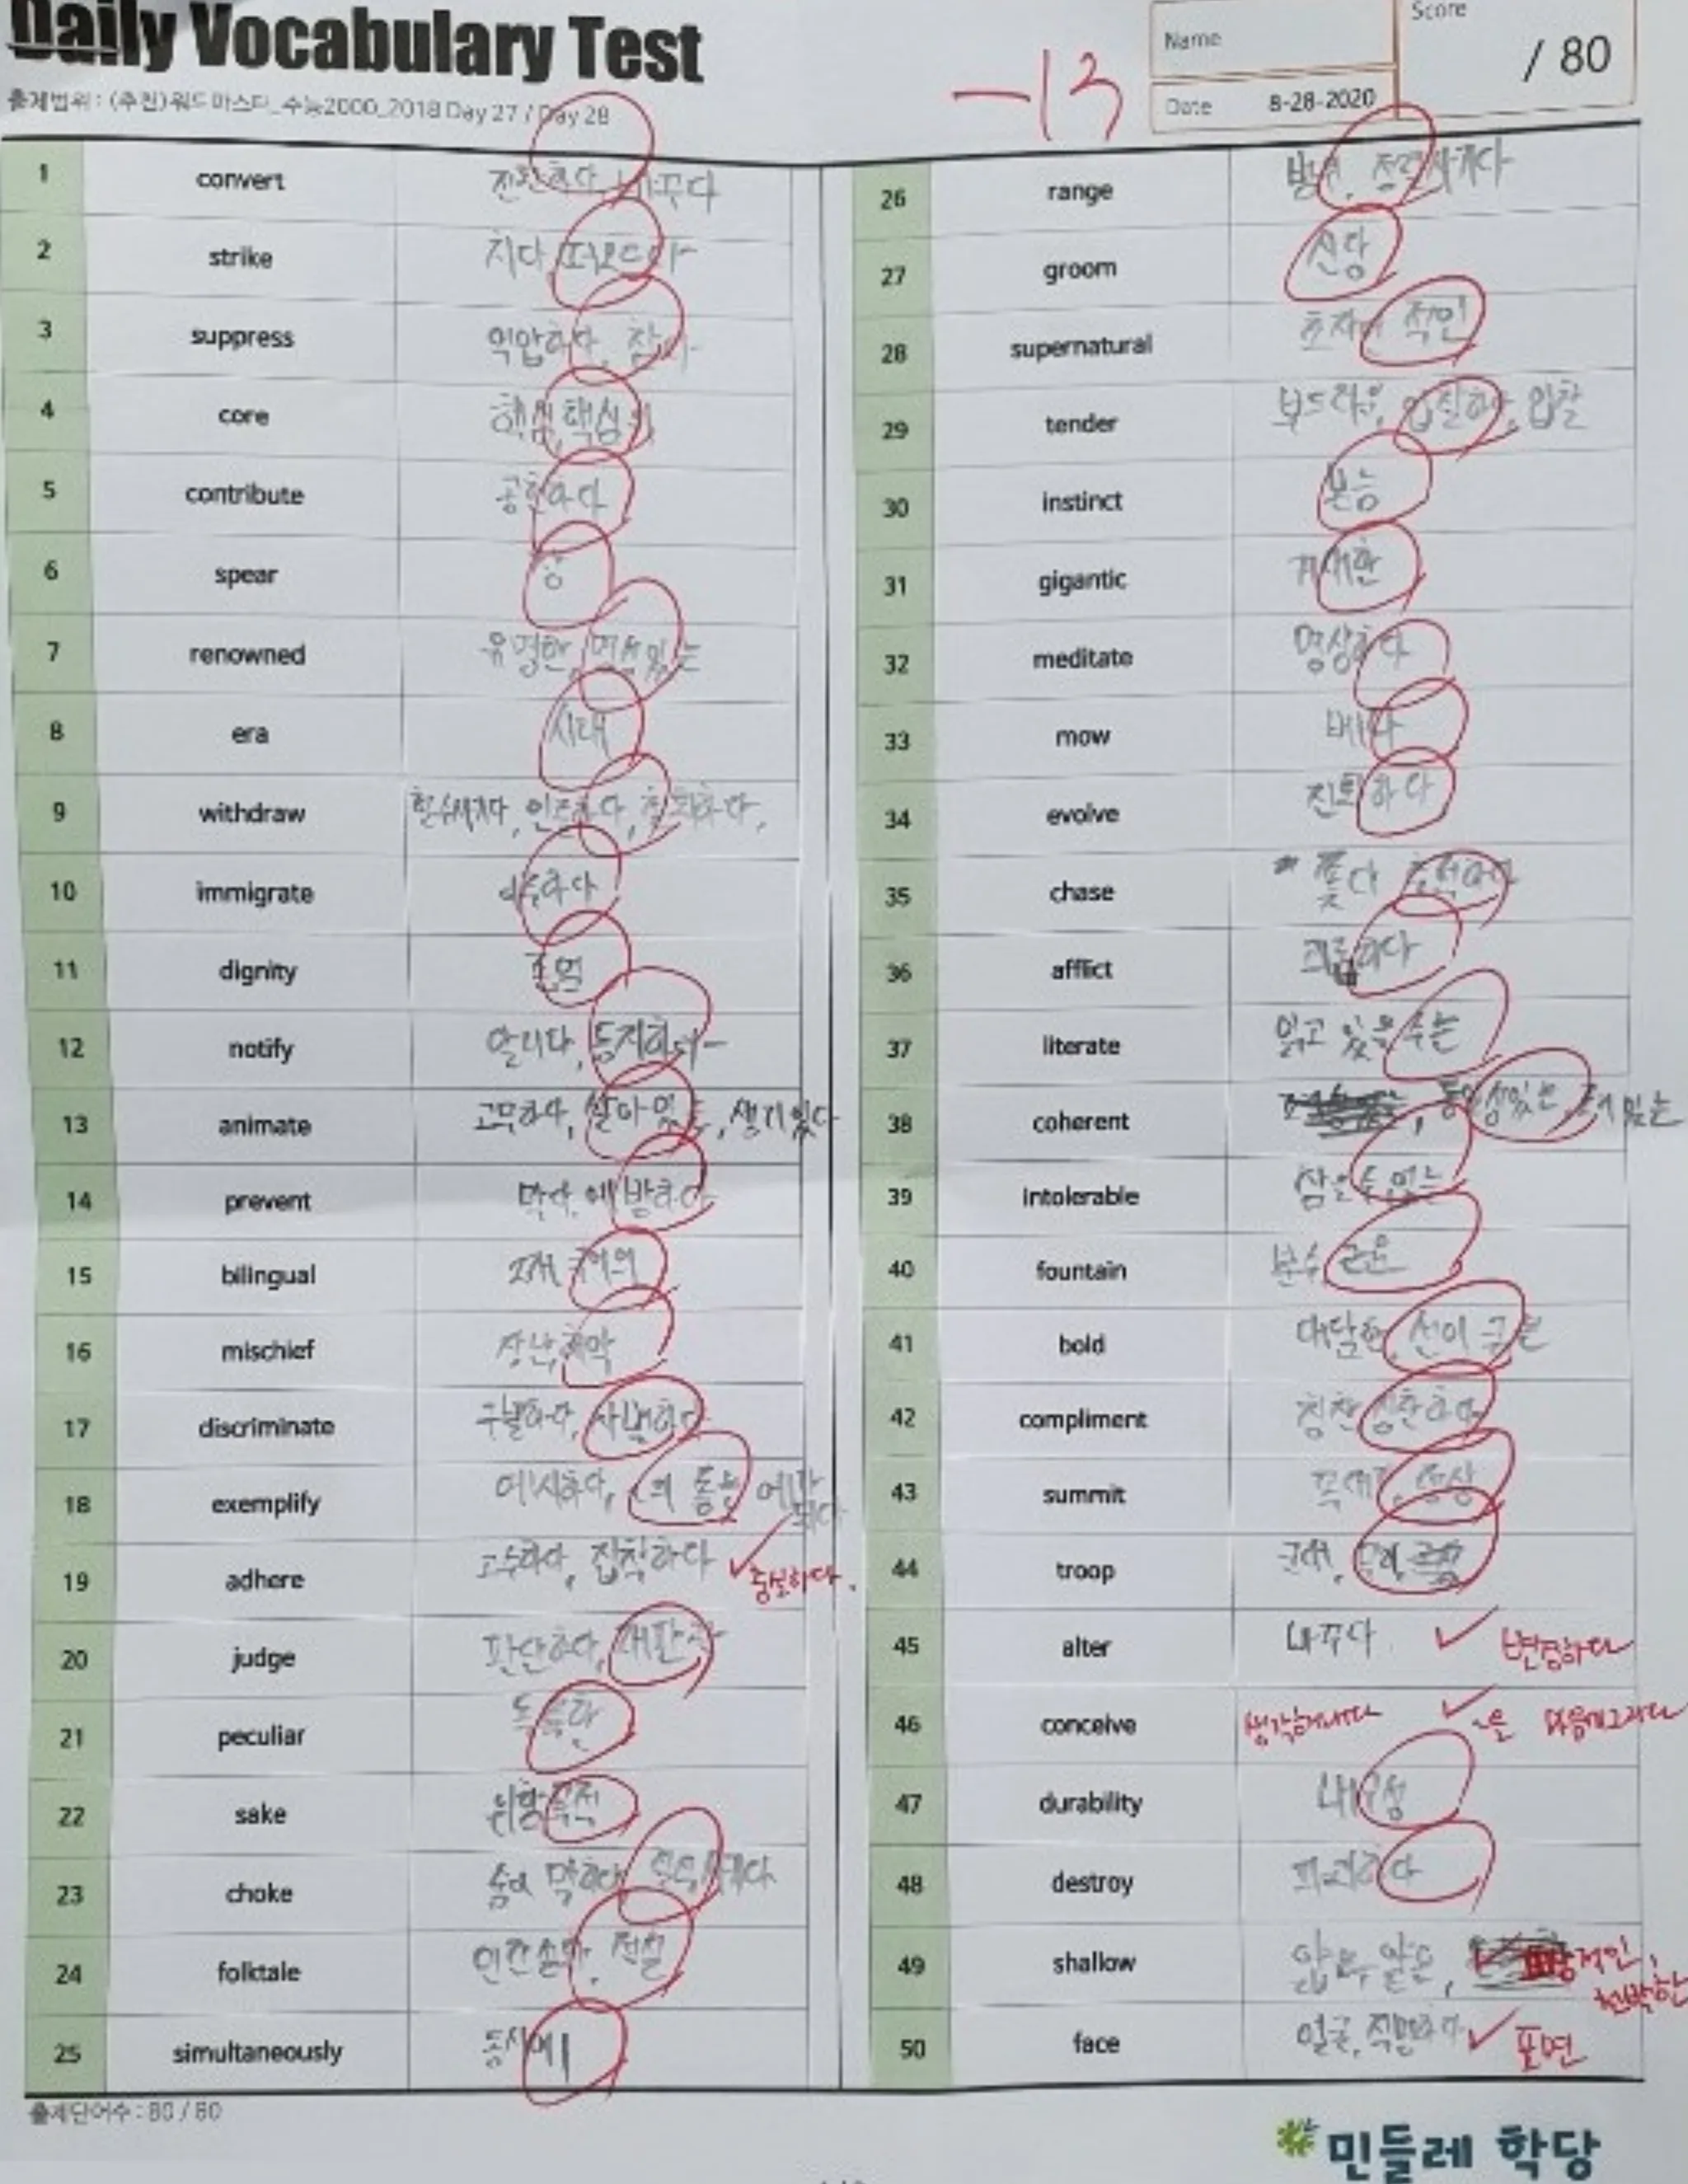 Daily Vocabulary Test
Name
Score
/ 80
-13
Date 8-28-2020
출제범위 : (추천)워드마스터_수능2000_2018 Day 27 / Day 28
1 convert 전환하다, 바꾸다
2 strike 치다, 떠오르다
3 suppress 억압하다, 참다
4 core 핵심, 핵심의
5 contribute 공헌하다
6 spear 창
7 renowned 유명한, 명성있는
8 era 시대
9 withdraw 철수시키다, 인출하다, 철회하다,
10 immigrate 이주하다
11 dignity 존엄
12 notify 알리다, 통지하다
13 animate 고무하다, 살아있는, 생기있다
14 prevent 막다, 예방하다
15 bilingual 2개 국어의
16 mischief 장난, 해악
17 discriminate 구별하다, 차별하다
18 exemplify 예시하다, 의 좋은 예가 되다
19 adhere 고수하다, 집착하다
20 judge 판단하다, 재판
21 peculiar 독특한
22 sake 위함, 목적
23 choke 숨이 막히다, 질식시키다
24 folktale 민간설화, 전설
25 simultaneously 동시에
26 range 범위, 정렬시키다
27 groom 신랑
28 supernatural 초자연적인
29 tender 부드러운, 입찰하다, 입찰
30 instinct 본능
31 gigantic 거대한
32 meditate 명상하다
33 mow 베다
34 evolve 진화하다
35 chase 쫓다 추적하다
36 afflict 괴롭히다
37 literate 읽고 있을 수는
38 coherent , 통일성있는, 조리 있는
39 intolerable 참을 수 없는
40 fountain 분수, 근원
41 bold 대담한, 선이 굵은
42 compliment 칭찬, 칭찬하다
43 summit 꼭대기, 정상
44 troop 군대, 무리,
45 alter 바꾸다 변경하다
46 conceive 생각해내다 ~을 마음에그리다
47 durability 내구성
48 destroy 파괴하다
49 shallow 얇은, 얕은, 적인, 천박한
50 face 얼굴, 직면하다 표면
출제단어수 : 80 / 80
민들레 학당